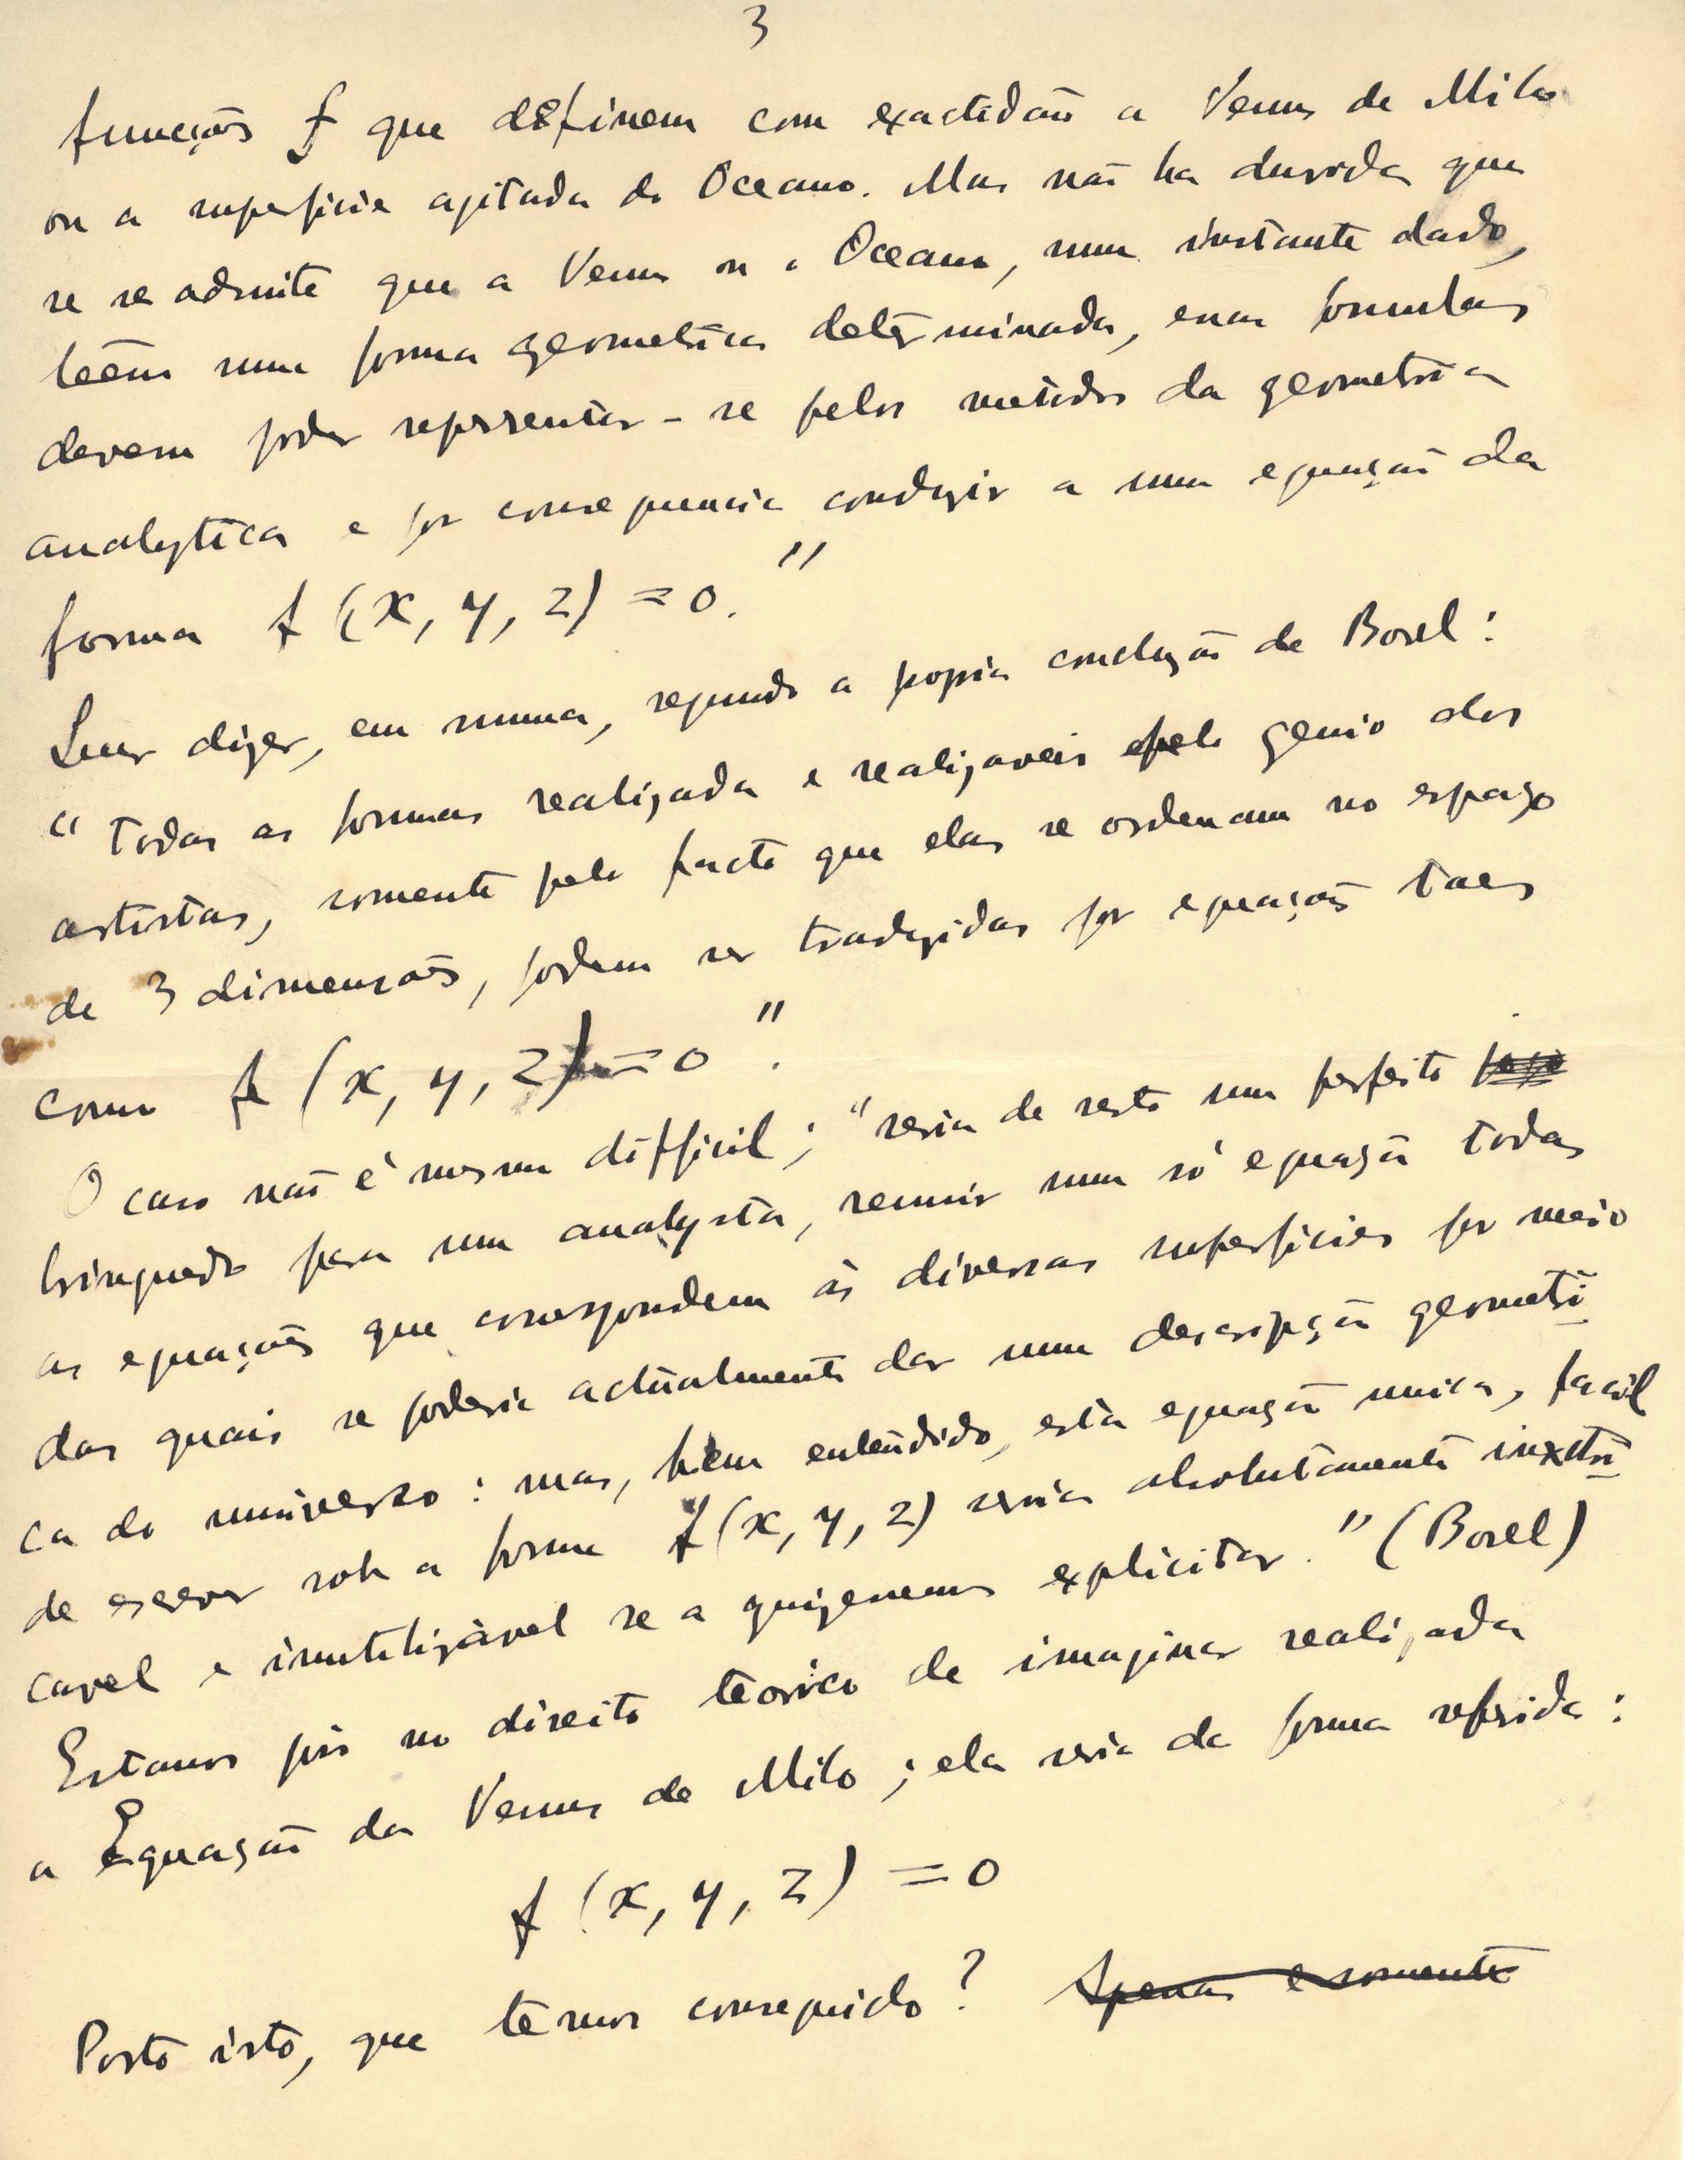 3
funcções f que definem com exactidão a Venus de Milo
ou a superficie agitada do Oceano. Mas não ha duvida que
se se admite que a Venus ou o Oceano, num instante dado,
teêm uma forma geometrica determinada, essas formulas
devem poder representar-se pelos metodos da geometria
analytica e por consequencia conduzir a uma equação da
forma f (x, y, z) = 0."
Quer dizer, em summa, segundo a propria conclusão de Borel:
"Todas as formas realizadas e realizaveis pelo genio dos
artistas, somente pelo facto que elas se ordenam no espaço
de 3 dimensões, podem ser traduzidas por equações taes
como f (x, y, z) = 0".
O caso não é mesmo difficil; "seria de resto um perfeito
brinquedo para um analysta, reunir numa só equação todas
as equações que correspondem ás diversas superficies por meio
das quais se poderia actualmente dar uma descripção geometri
ca do universo: mas, bem entendido, esta equação unica, facil
de escrever sob a forma f (x, y, z) seria absolutamente inextri
cavel e inutilizável se a quizessemos explicitar." (Borel)
Estamos pois no direito teorico de imaginar realizada
a Equação da Venus de Milo; ela seria da forma referida:
f (x, y, z) = 0
Posto isto, que temos conseguido? Apenas e somente